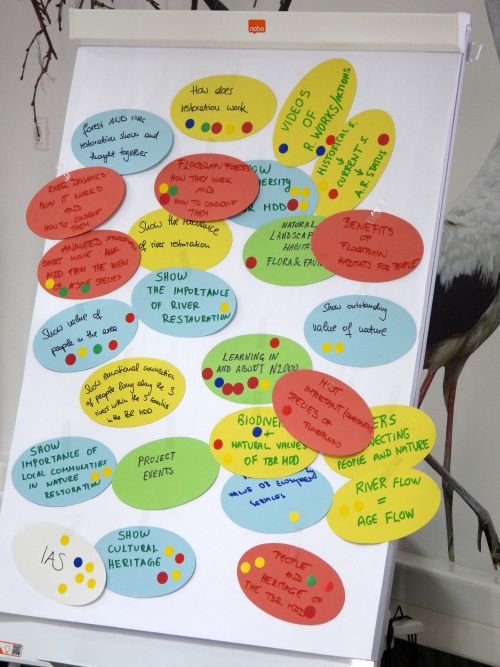 nobo
How does
restoration work
VIDEOS
OF
R. WORKS/ACTIONS
HISTORICAL S.
CURRENT S.
A.R. STATUS
forest AND river
restoration shown and
thought together
FLOODPLAIN FORESTS
HOW THEY WORK
AND
HOW TO CONSERVE
THEM
SHOW
MDD
RIVER DYNAMICS
HOW IT WORKS
AND
HOW TO CONSERVE
THEM
Show the
of river restoration
NATURAL
FLORA & FAUNA
BENEFITS
OF
FLOODPLAIN
HABITATS FOR PEOPLE
ANIMATED
SHORT MOVIE
MDD FROM THE VIEW
OF A SPECIES
SHOW
THE IMPORTANCE
OF RIVER
RESTAURATION
Show value of
people in the area
Show outstanding
value of nature
LEARNING IN
AND ABOUT N2000
Show emotional connection
of people living along the 3
rivers within the 5 countries
in the TBR MDD
MOST
IMPORTANT
SPECIES OF
BIODIVER
+
NATURAL VALUES
OF TBR MDD
PEOPLE AND NATURE
SHOW
IMPORTANCE OF
LOCAL COMMUNITIES
IN NATURE
RESTORATION
PROJECT
EVENTS
VALUE OF ECOSYSTEM
SERVICES
RIVER FLOW
=
AGE FLOW
IAS
SHOW
CULTURAL
HERITAGE
PEOPLE
AND
HERITAGE OF
THE TBR MDD